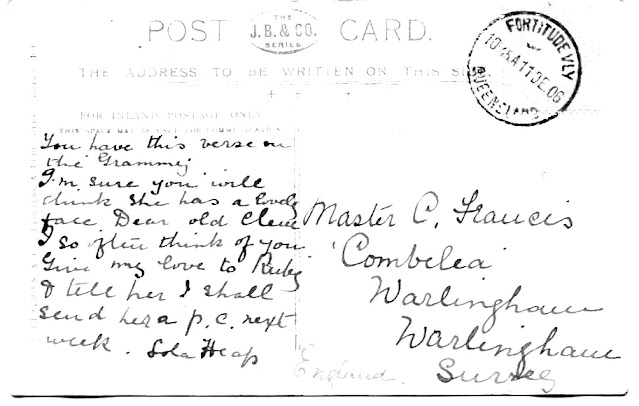 POST CARD.
THE
J.B. & CO.
SERIES
THE ADDRESS TO BE WRITTEN ON THIS SIDE
FORTITUDE VLY
10·45A 11 DE 06
QUEENSLAND
FOR INLAND POSTAGE ONLY
THIS SPACE MAY BE USED FOR COMMUNICATION
You have this verse on
the Grammy
I'm sure you will
think she has a lovely
face. Dear old Clem
I so often think of you
Give my love to Ruby
& tell her I shall
send her a p.c. next
week. Lola Heap
Master C. Francis
'Combelea'
Warlingham
Warlingham
Surrey
England.